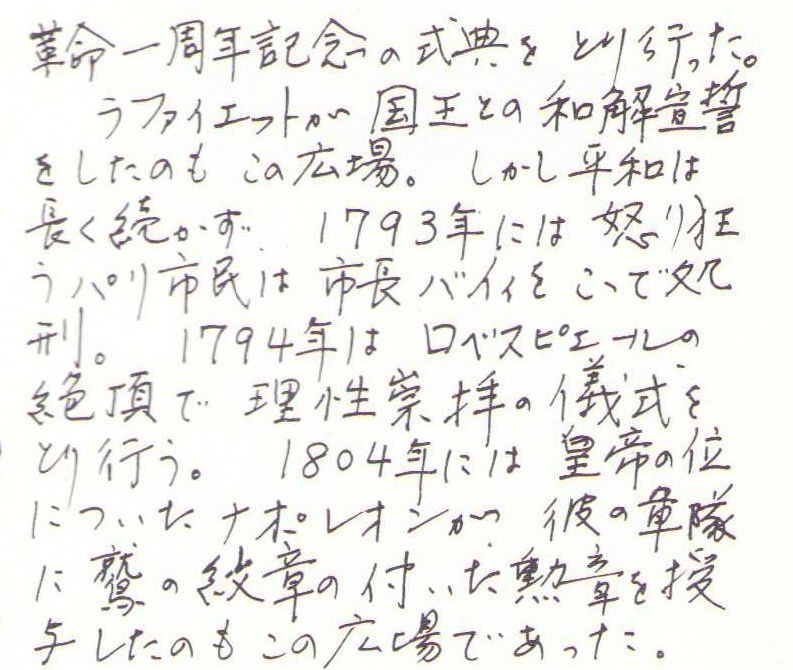 革命一周年記念の式典を とり行った。
ラファイエットが 国王との 和解宣誓
をしたのも この広場。 しかし平和は
長く続かず、 1793年には 怒り狂
うパリ市民は 市長バイィを ここで処
刑。 1794年は ロベスピエールの
絶頂で 理性崇拝の儀式を
とり行う。 1804年には 皇帝の位
についたナポレオンが 彼の軍隊
に鷲の紋章の付いた勲章を授
与したのもこの広場であった。